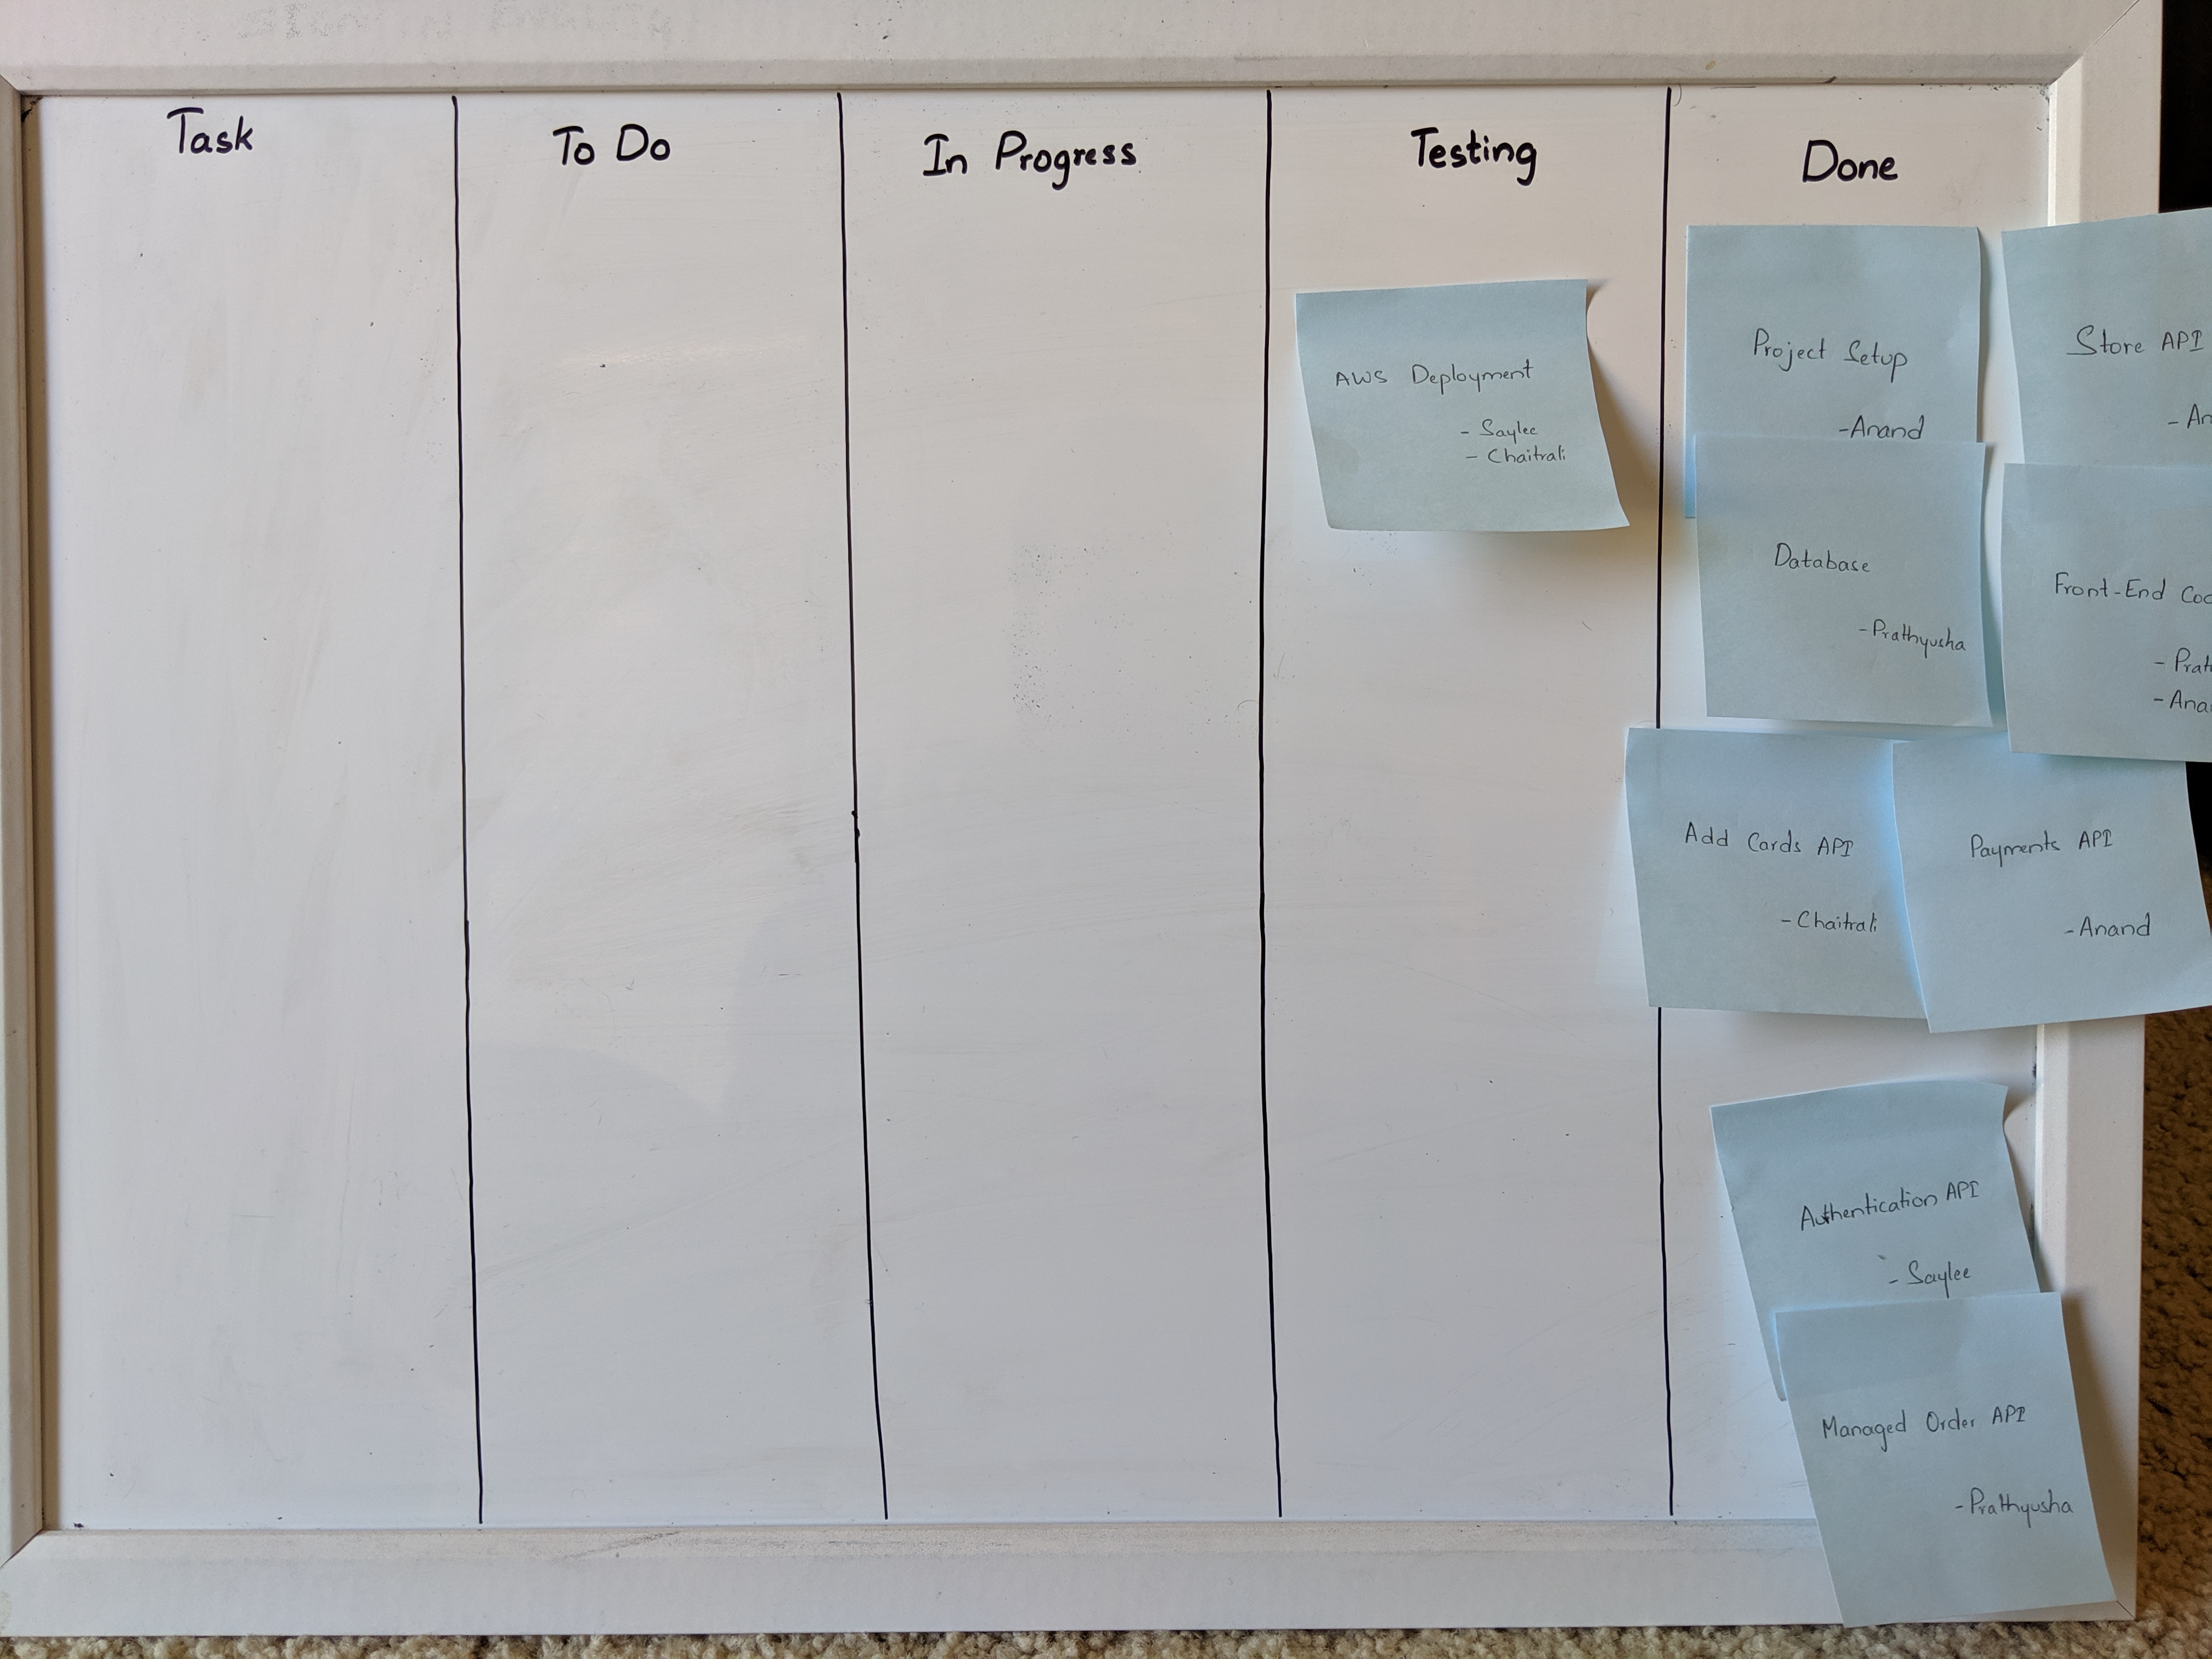 Task
To Do
In Progress
Testing
Done
AWS Deployment
- Saylee
- Chaitrali
Project Setup
-Anand
Store API
Database
-Prathyusha
Front-End
Add Cards API
-Chaitrali
Payments API
-Anand
Authentication API
- Saylee
Managed Order API
-Prathyusha